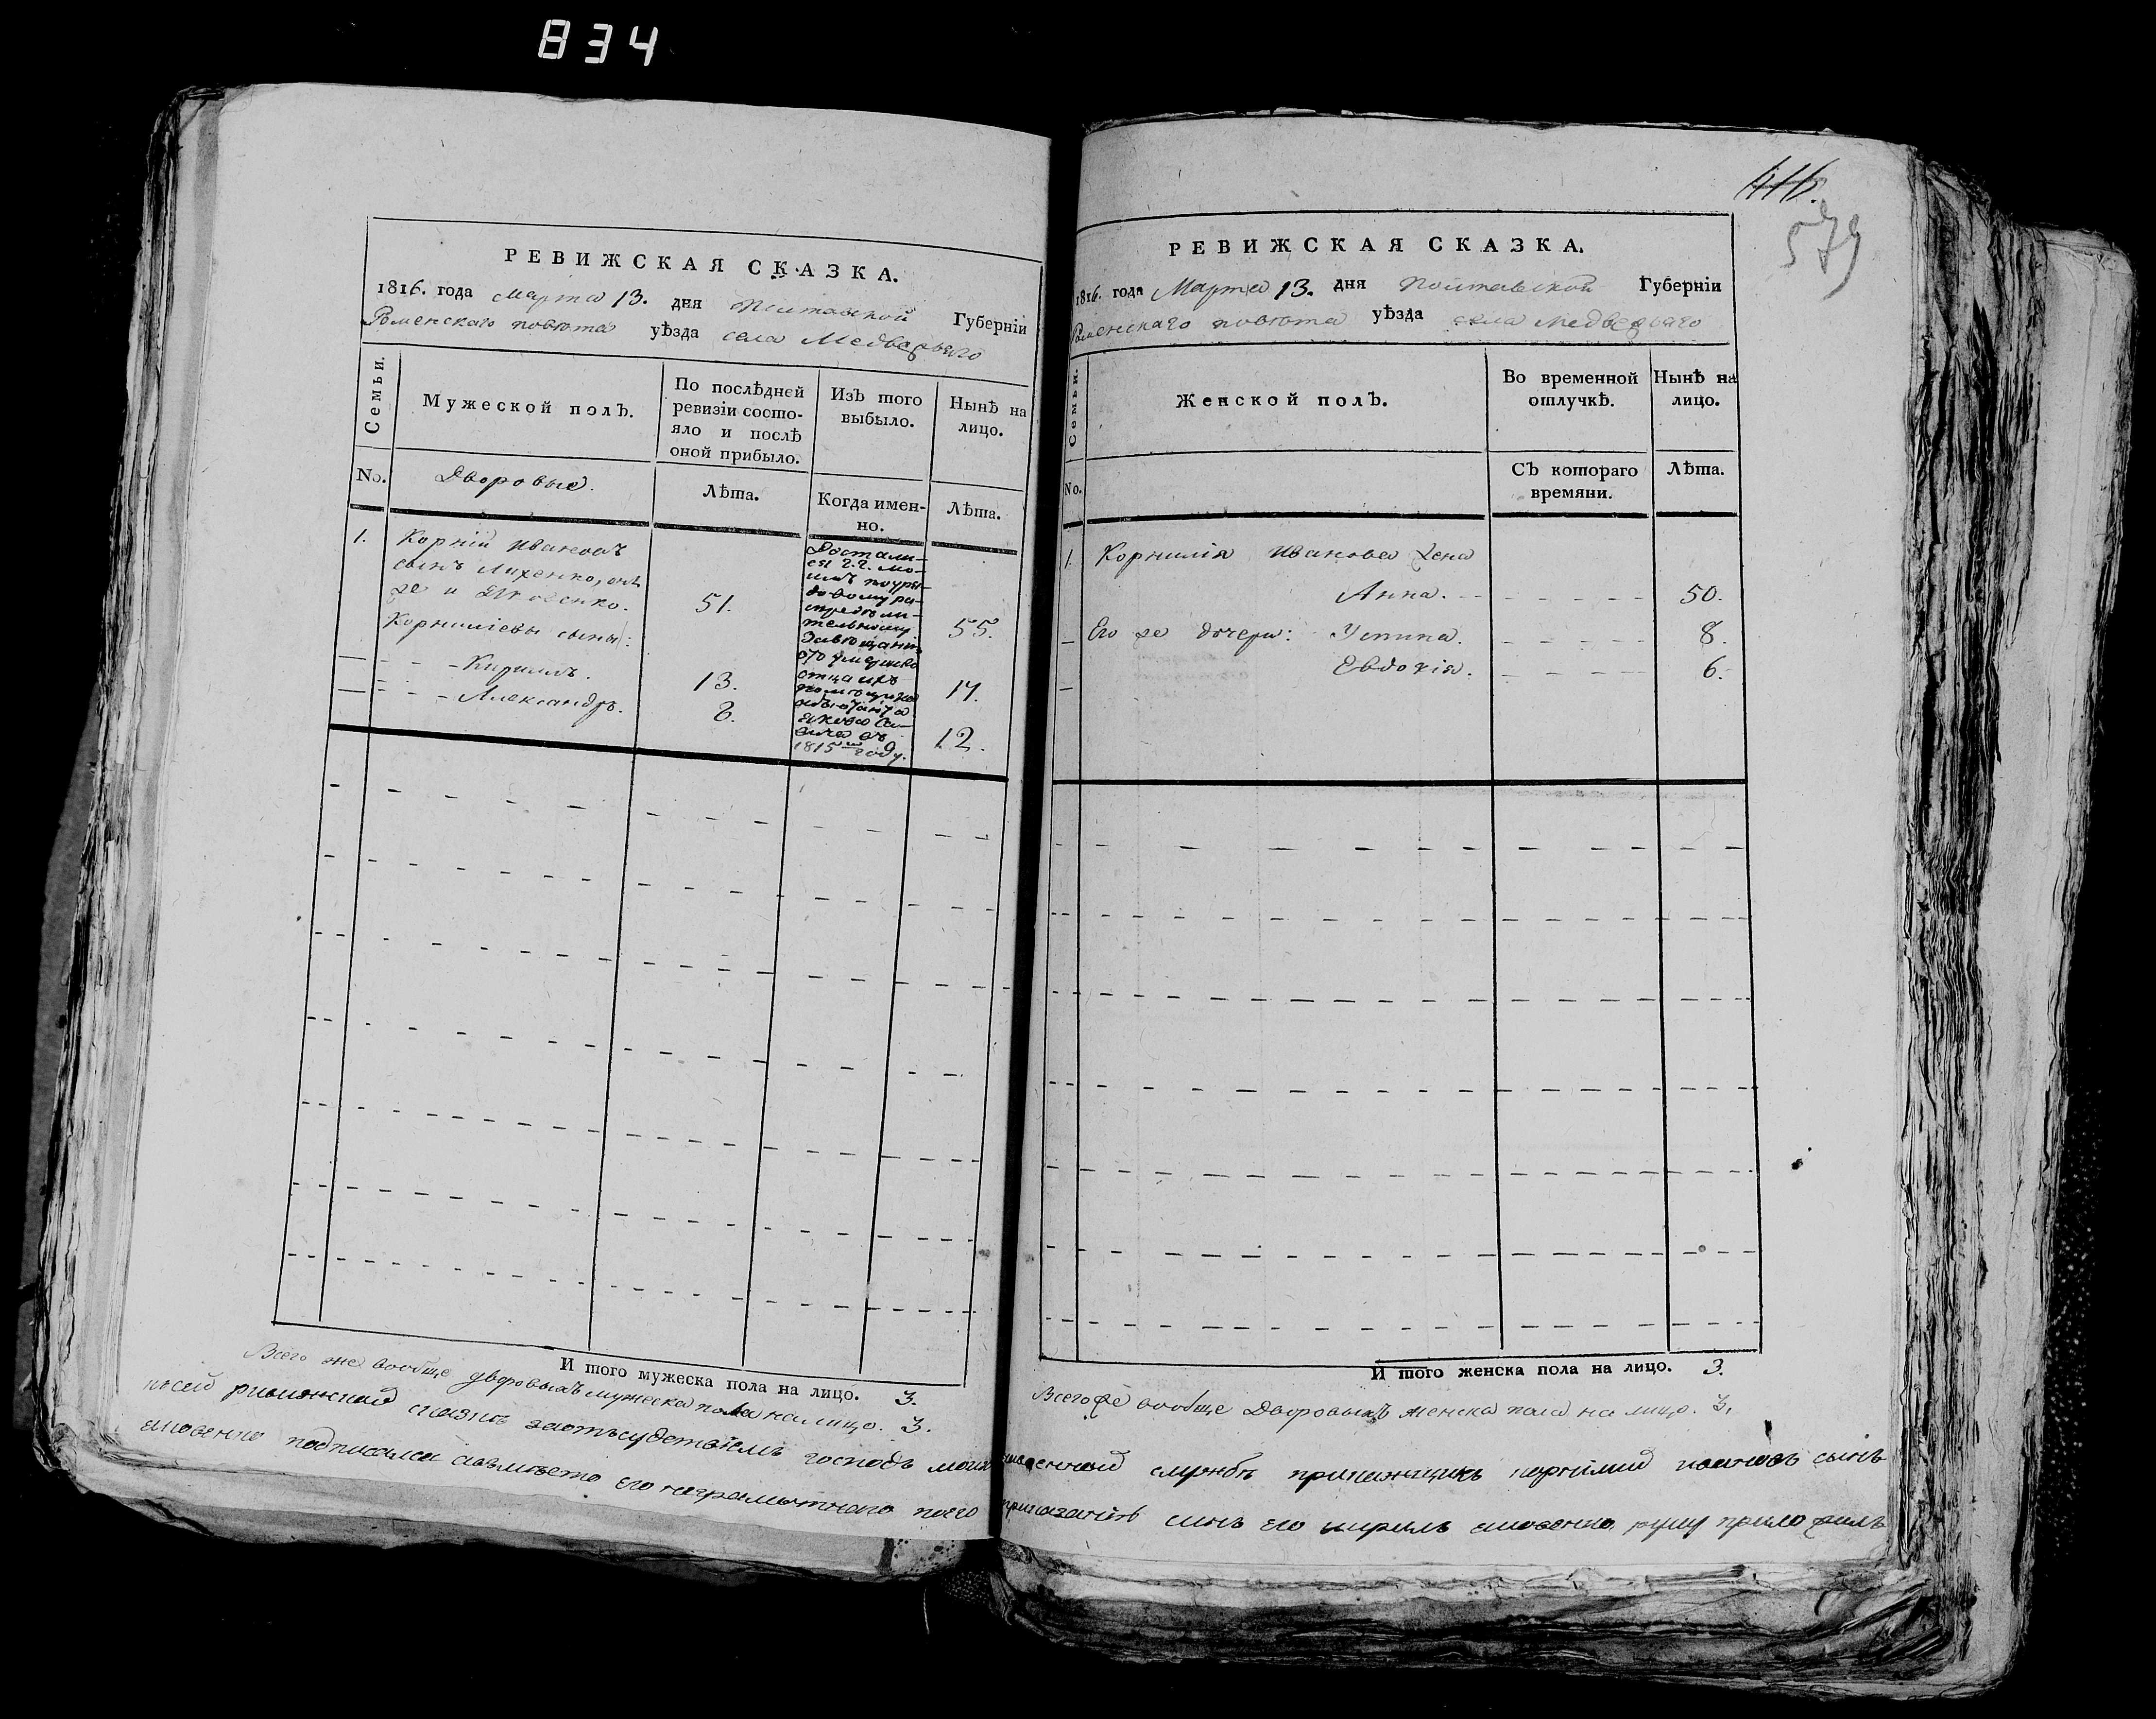 834
РЕВИЖСКАЯ СКАЗКА.
1816. года Марта 13. дня Полтавской Губерніи
Роменскаго повѣта уѣзда села Медвежаго
Семьи.
Мужеской полъ.
По послѣдней ревизіи состо-
яло и послѣ
оной прибыло.
Изъ того
выбыло.
Нынѣ на
лицо.
No.
Дворовые.
Лѣта.
Когда имен-
но.
Лѣта.
1. Корній Ивановъ
сынъ
же и
51.
55.
Корниліевы сыны:
Кирилъ. 13. 17.
Александръ. 8. 12.
Достали-
ся г.г. мо-
имъ
завѣщанію
отца ихъ
1815мъ году.
И того мужеска пола на лицо. 3.
Всего же вообще дворовыхъ мужеска пола на лицо. 3.
416.
579
РЕВИЖСКАЯ СКАЗКА.
1816. года Марта 13. дня Полтавской Губерніи
Роменскаго повѣта уѣзда села Медвежаго
Семьи.
Женской полъ.
Во временной
отлучкѣ.
Нынѣ на
лицо.
No.
Съ котораго
времяни.
Лѣта.
1. Корнилія Иванова жена
Анна. 50.
Его же дочери: Устина. 8.
Евдокія. 6.
И того женска пола на лицо. 3.
Всего же вообще Дворовыхъ женска пола на лицо. 3.
къ сей сказкѣ за отъсудствіемъ господъ моихъ службѣ прикащикъ корнилий ивановъ сынъ
подписался а вместо его неграмотнаго по его приказанію сынъ его кирилъ руку приложилъ